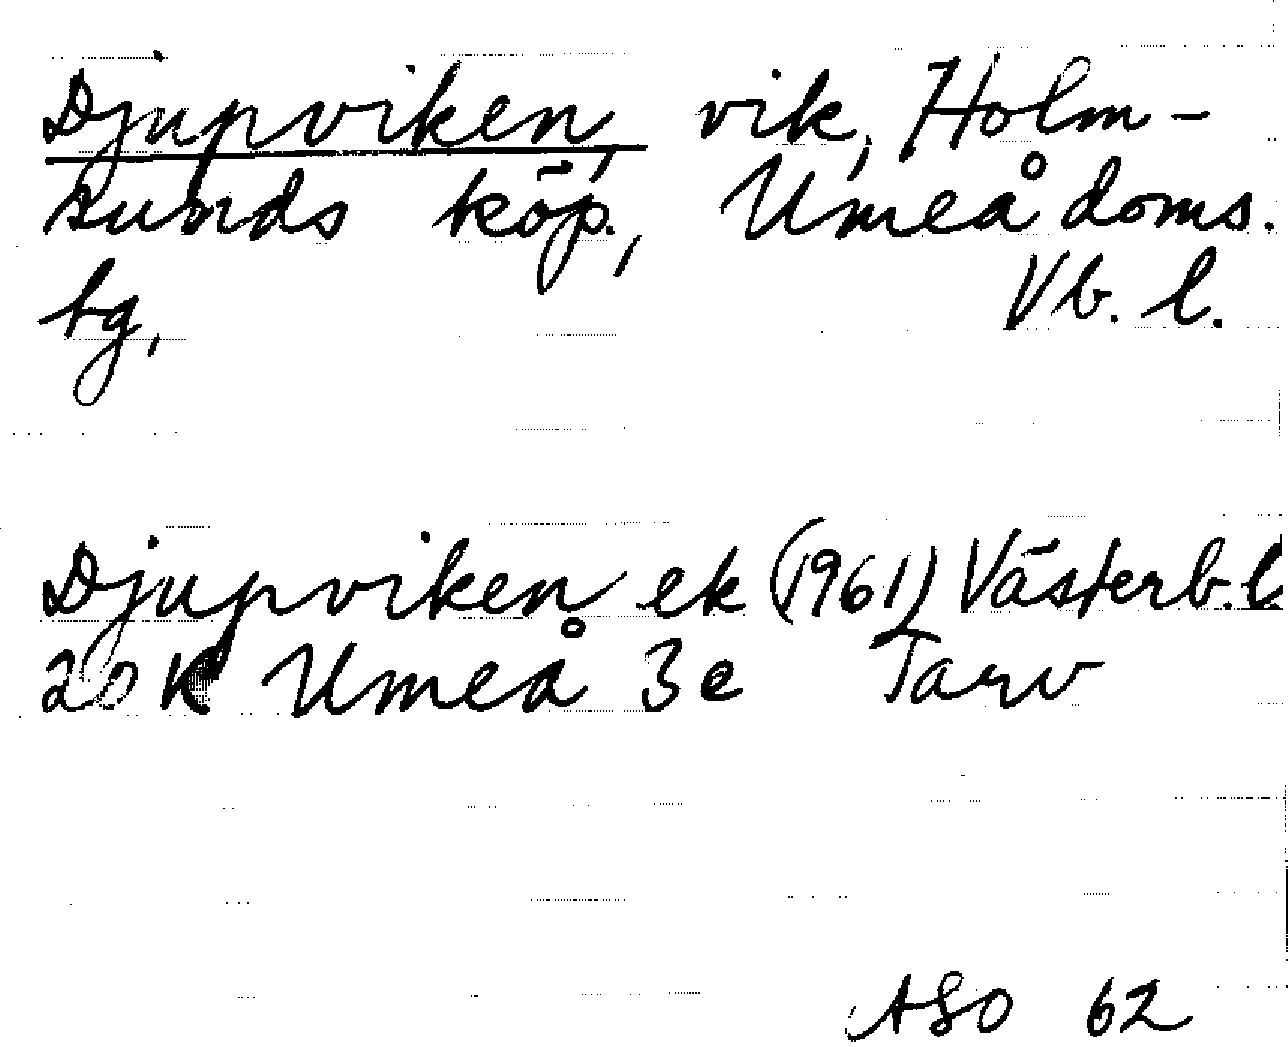 Djupviken, vik, Holm-
sunds köp., Umeå doms.
tg, Vb. l.
Djupviken ek (1961) Västerb. l.
20 K Umeå 3 e Tarv
ASO 62